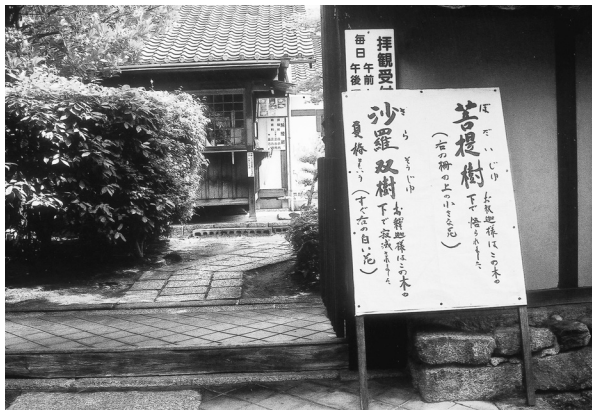 拝観受付
毎日 午前
午後
ぼだいじゆ
菩提樹
お釈迦様はこの木の
下で悟られました
(右の柵の上の小さな花)
さらそうじゆ
沙羅双樹
お釈迦様はこの木の
下で寂滅されました
夏椿という(すぐ右の白い花)